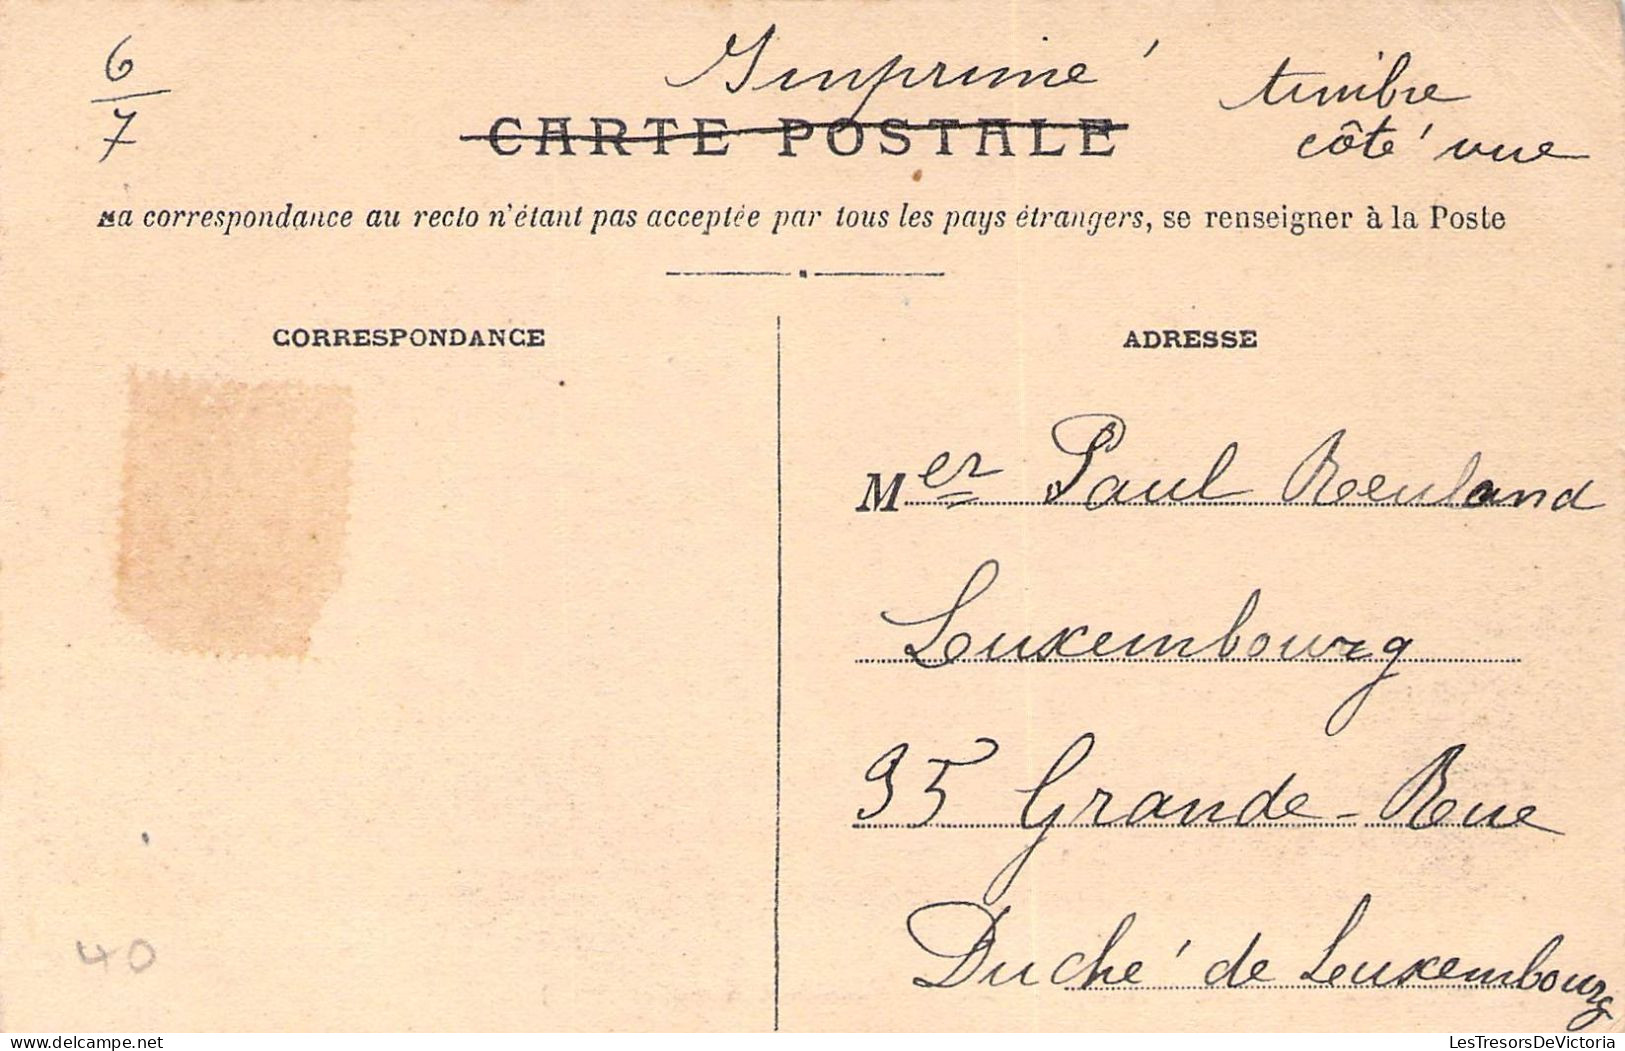 6
7
Imprimé
timbre
côté vue
CARTE POSTALE
La correspondance au recto n'étant pas acceptée par tous les pays étrangers, se renseigner à la Poste
CORRESPONDANCE
ADRESSE
Mer Paul Reuland
Luxembourg
95 Grande-Rue
Duché de Luxembourg
40
LesTresorsDeVictoria